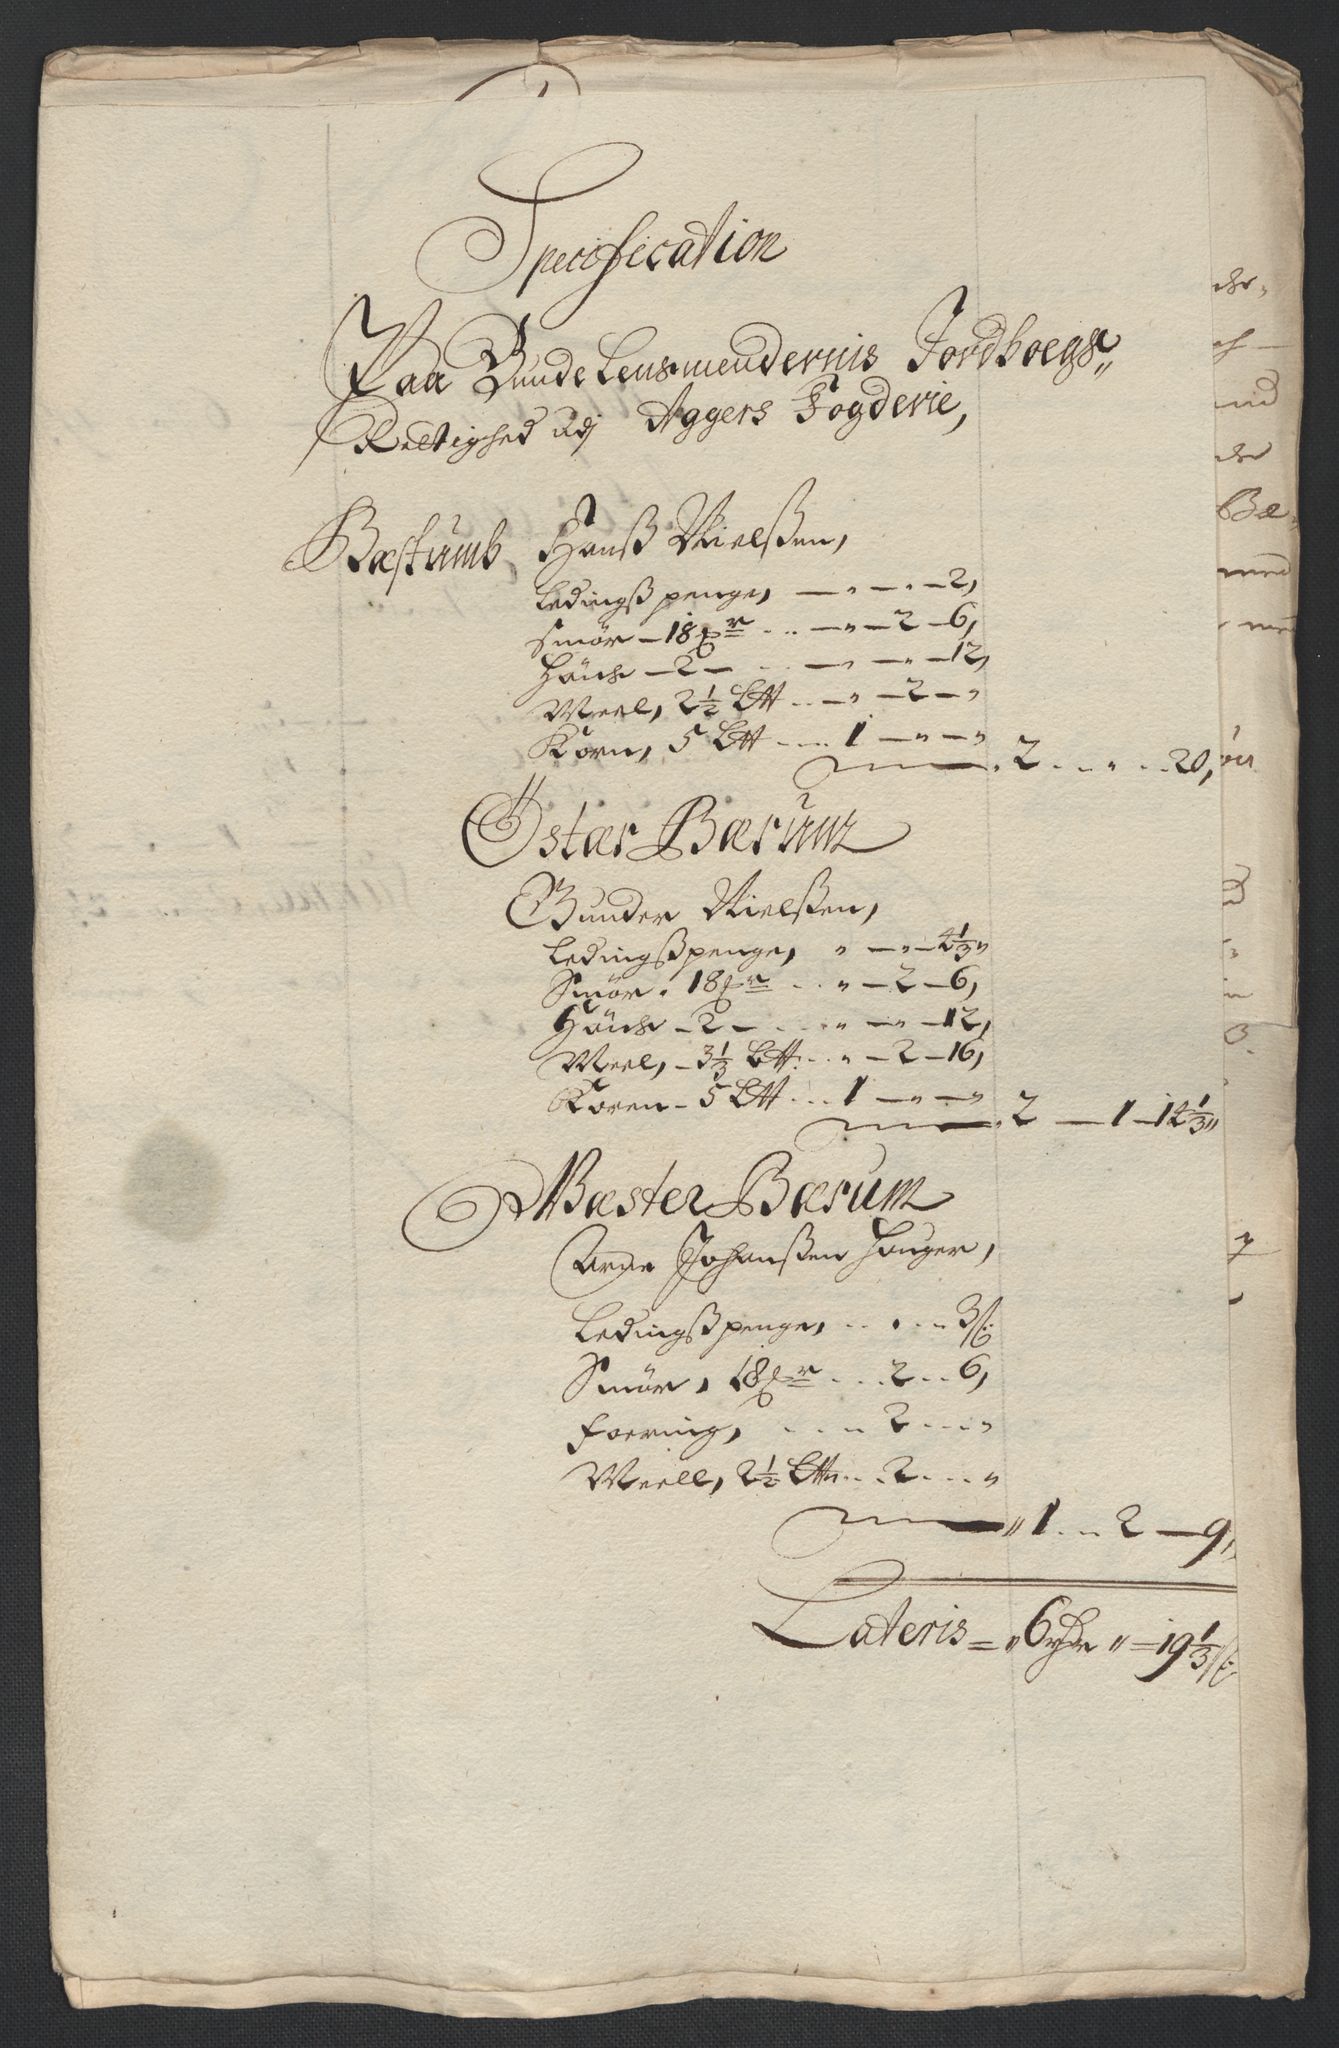 Specification
Paa Bunde Lensmendernis Jordboegs„
Rettighed udj Aggers Fogderie,
Bæstumb Hanß Nielßen,
Ledingß penge, — „ — „ — 2,
Smør — 18 ℔r .. — „ — 2 — 6,
Höide — 2 — .. — „ — „ — 12,
Meel, 2½ Ltt .. — „ — 2 — „
Korn, 5 Ltt .... 1 — „ — „
2 .. „ .. 20,
Östær Bærum
Gunder Nielßen,
Ledingßpenge, „ — „ — 4⅓„
Smør . 18 ℔r .. „ — 2 — 6,
Höide — 2 — .... „ — „ — 12,
Meel, — 3⅓ Ltt: .. „ — 2 — 16,
Koren — 5 Ltt ... 1 — „ — „
2 — 1 — 14⅓„
Wæster Bærum
Arne Johanßen Houger,
Ledingßpenge, .. „ .. 3ß:
Smør, 18 ℔r ... 2 .. 6,
Foering, .... 2 ... „
Meell, 2½ Ltt ... 2 ... „
„ 1 .. 2 — 9,
Lateris = „ 6 rdr „ — 19⅓ß: